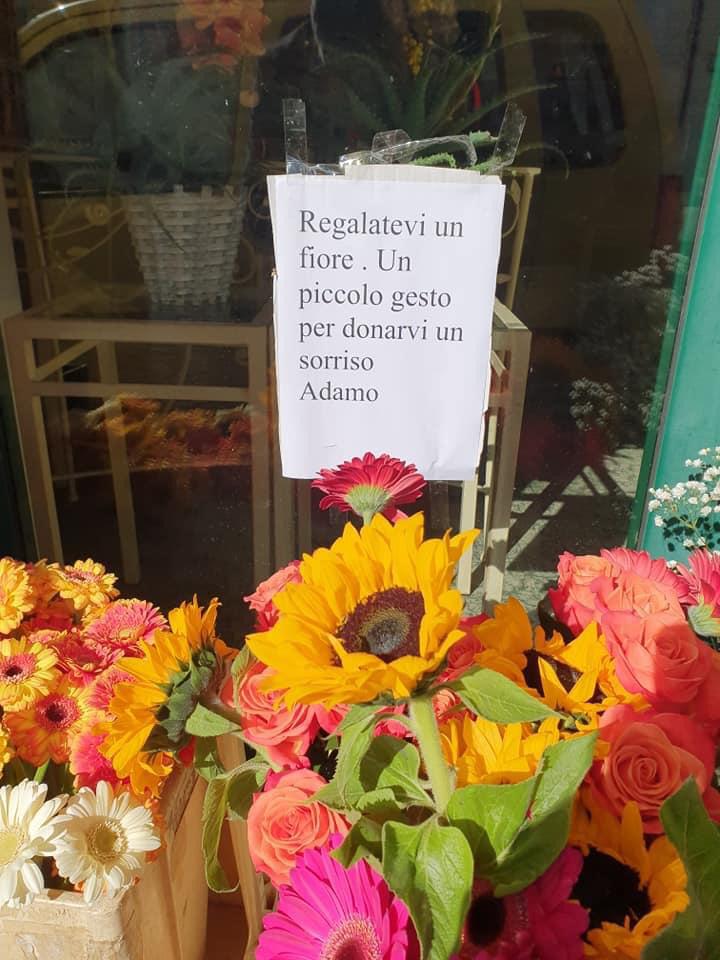 Regalatevi un
fiore . Un
piccolo gesto
per donarvi un
sorriso
Adamo